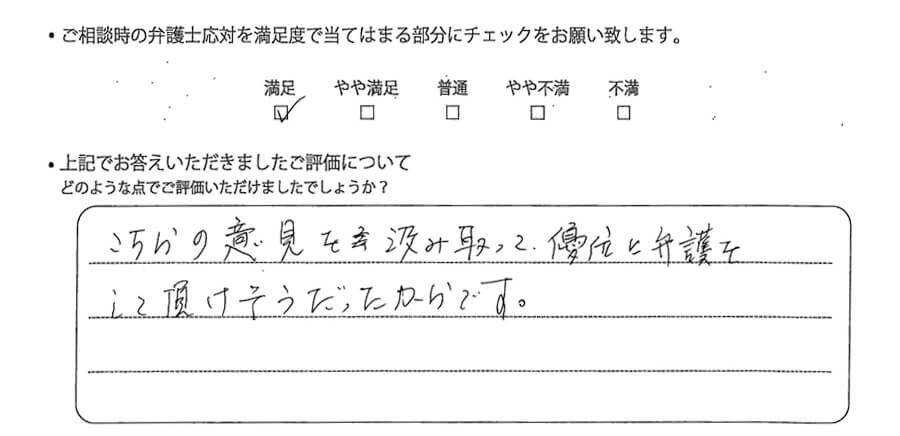 ・ご相談時の弁護士応対を満足度で当てはまる部分にチェックをお願い致します。
満足 やや満足 普通 やや不満 不満
・上記でお答えいただきましたご評価について
どのような点でご評価いただけましたでしょうか？
こちらの意見を汲み取って、優位に弁護を
して頂けそうだったからです。